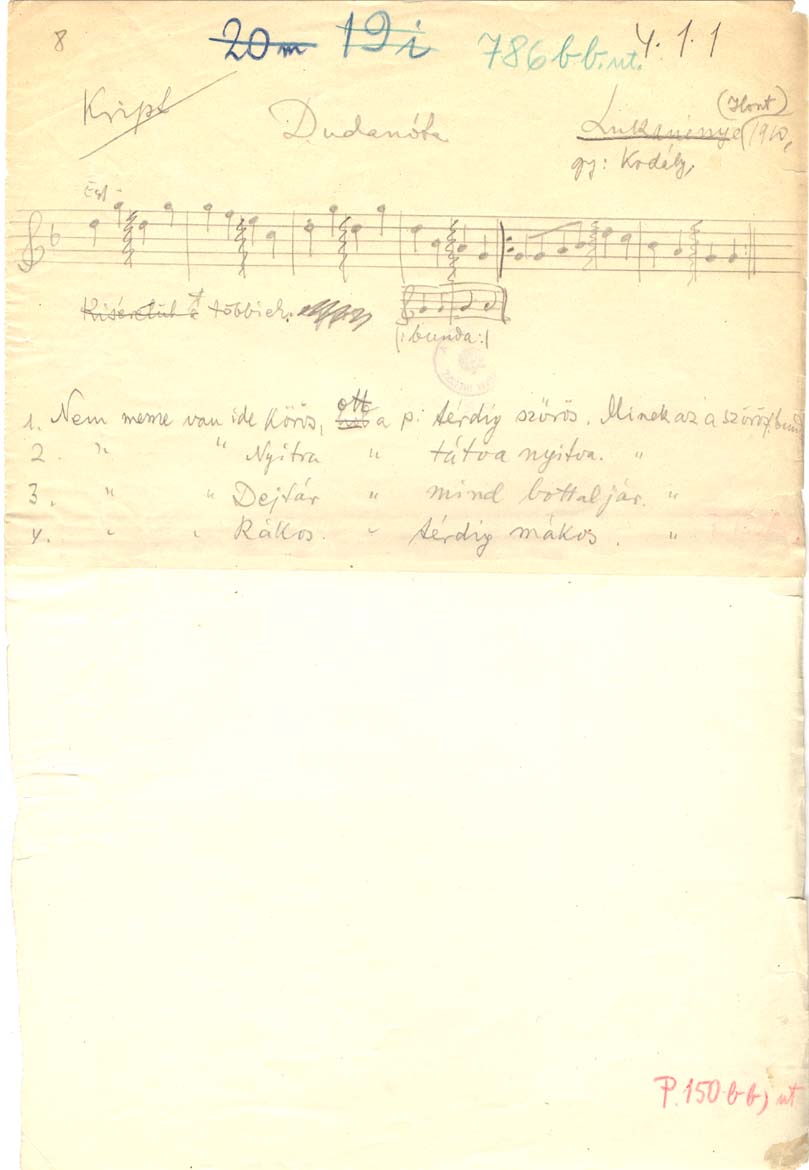 8 20m 19i 786 b-b. ut. 4.1.1
Kript Dudanóta Lukanénye (Hont) 1910,
gy: Kodály,
Kiséretül a többiek:
(: bunda :)
1. Nem messe van ide Kőrös, ott a p: térdig szőrös. Minek az a szőrös
2. " " Nyitra " tátva nyitva. "
3. " " Dejtár " mind bottal jár. "
4. " " Rákos. " térdig mákos. "
P. 150 b-b) ut